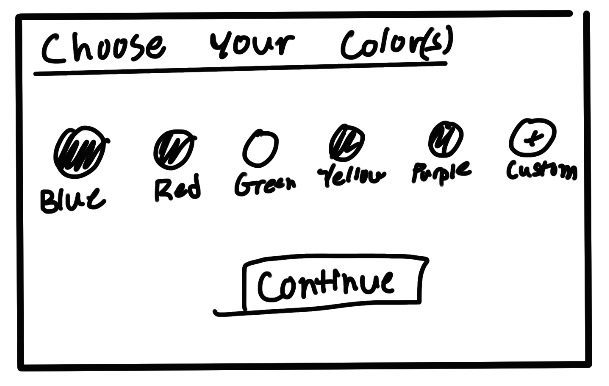 Choose your Color(s)
Blue Red Green Yellow Purple Custom
Continue